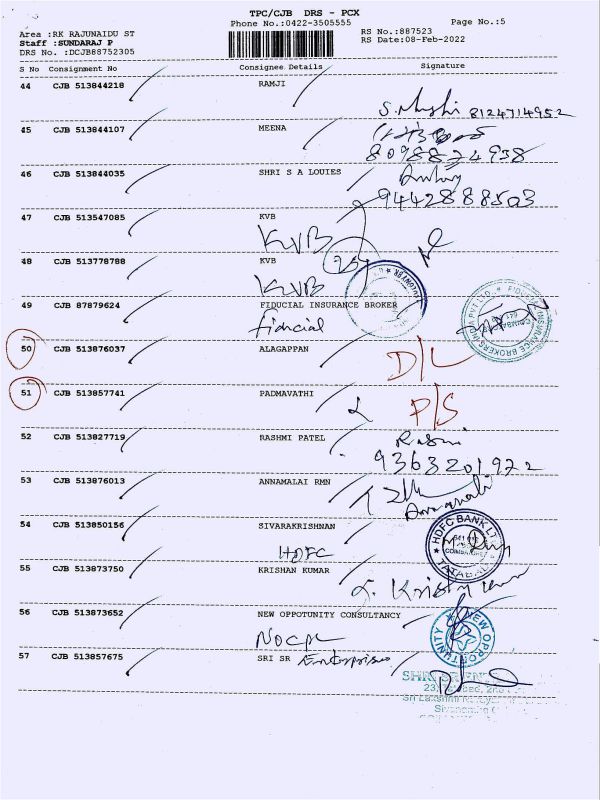 TPC/CJB DRS - PCX
Phone No.:0422-3505555
Page No.:5
Area :RK RAJUNAIDU ST
Staff :SUNDARAJ P
DRS No. :DCJB88752305
RS No.:887523
RS Date:08-Feb-2022
S No Consignment No Consignee Details Signature
44 CJB 513844218 RAMJI
8124714952
45 CJB 513844107 MEENA
8098874938
46 CJB 513844035 SHRI S A LOUIES
9442888503
47 CJB 513547085 KVB
KVB
48 CJB 513778788 KVB
KVB
49 CJB 87879624 FIDUCIAL INSURANCE BROKER
fiducial
50 CJB 513876037 ALAGAPPAN
D/L
51 CJB 513857741 PADMAVATHI
P/S
52 CJB 513827719 RASHMI PATEL
9363201972
53 CJB 513876013 ANNAMALAI RMN
54 CJB 513850156 SIVARAKRISHNAN
HDFC
HDFC BANK LT
55 CJB 513873750 KRISHAN KUMAR
56 CJB 513873652 NEW OPPOTUNITY CONSULTANCY
NOCPL
NEW OPPORTUNITY
57 CJB 513857675 SRI SR Enterprises